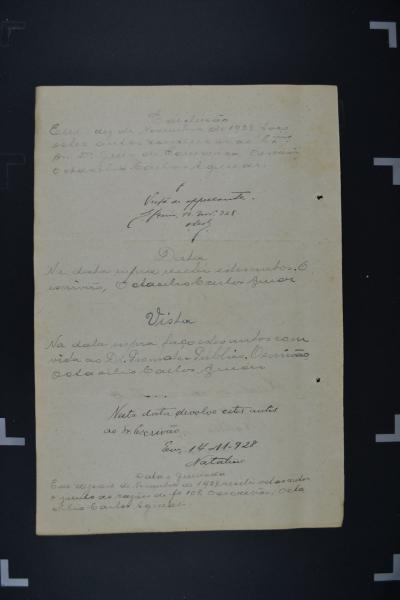 Conclusão
Em dez de Novembro de 1928 faço
estes autos conclusos ao Exmo
Sr. Dr. Juiz de Escrivão
Octacilio Carlos
Vista ao appellante.
Nov. 928
Data
Na data supra recebi estes autos. O
escrivão, Octacilio Carlos
Vista
Na data supra faço estes autos com
vista ao Dr. Promotor Publico. O escrivão
Octacilio Carlos
Nesta data devolvo estes autos
ao Sr. Escrivão.
Em, 14-11-928
Natalino
Data e Juntada
Em de Novembro de 1928 recebi
e junto as razões de fs 108. O escrivão, Octa
cilio Carlos